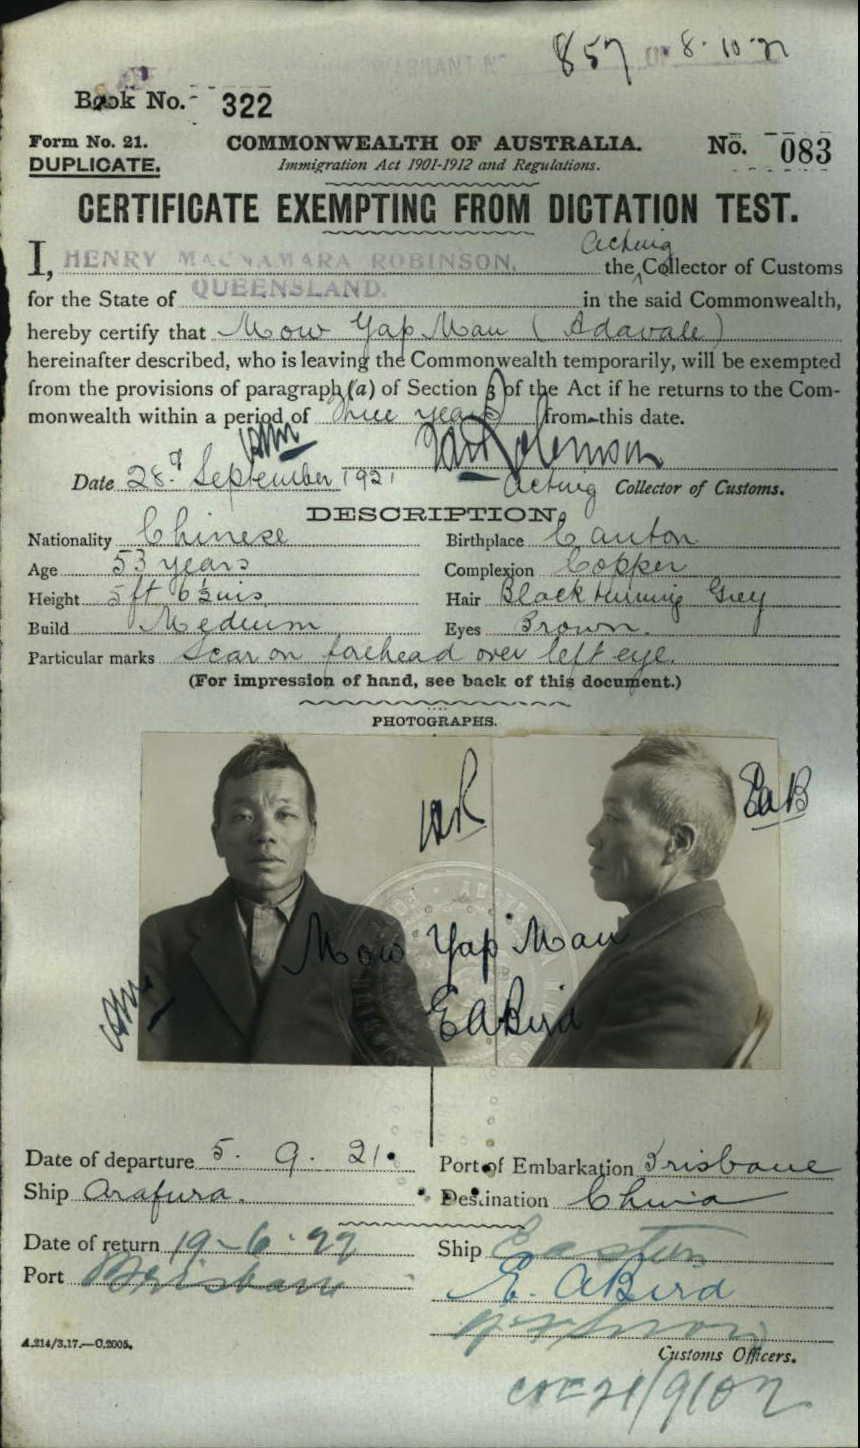 857 8.10.21
Book No. - 322
Form No. 21. COMMONWEALTH OF AUSTRALIA. No. 083
DUPLICATE. Immigration Act 1901-1912 and Regulations.
CERTIFICATE EXEMPTING FROM DICTATION TEST.
Acting
I, HENRY MACNAMARA ROBINSON, the Collector of Customs
for the State of QUEENSLAND. in the said Commonwealth,
hereby certify that Mow Yap Mau (Adavale)
hereinafter described, who is leaving the Commonwealth temporarily, will be exempted
from the provisions of paragraph (a) of Section 3 of the Act if he returns to the Com-
monwealth within a period of three years from this date.
Date 28th September 1921 Acting Collector of Customs.
DESCRIPTION.
Nationality Chinese Birthplace Canton
Age 53 years Complexion Copper
Height 5ft 6½ins. Hair Black turning Grey
Build Medium Eyes Brown.
Particular marks Scar on forehead over left eye.
(For impression of hand, see back of this document.)
PHOTOGRAPHS.
HR EaB
Mow Yap Mau
E A Bird
Date of departure 5. 9. 21. Port of Embarkation Brisbane
Ship Arafura. Destination China
Date of return 19-6-22 Ship Eastern
Port Brisbane E. A Bird
A.214/3.17.—C.2005. Customs Officers.